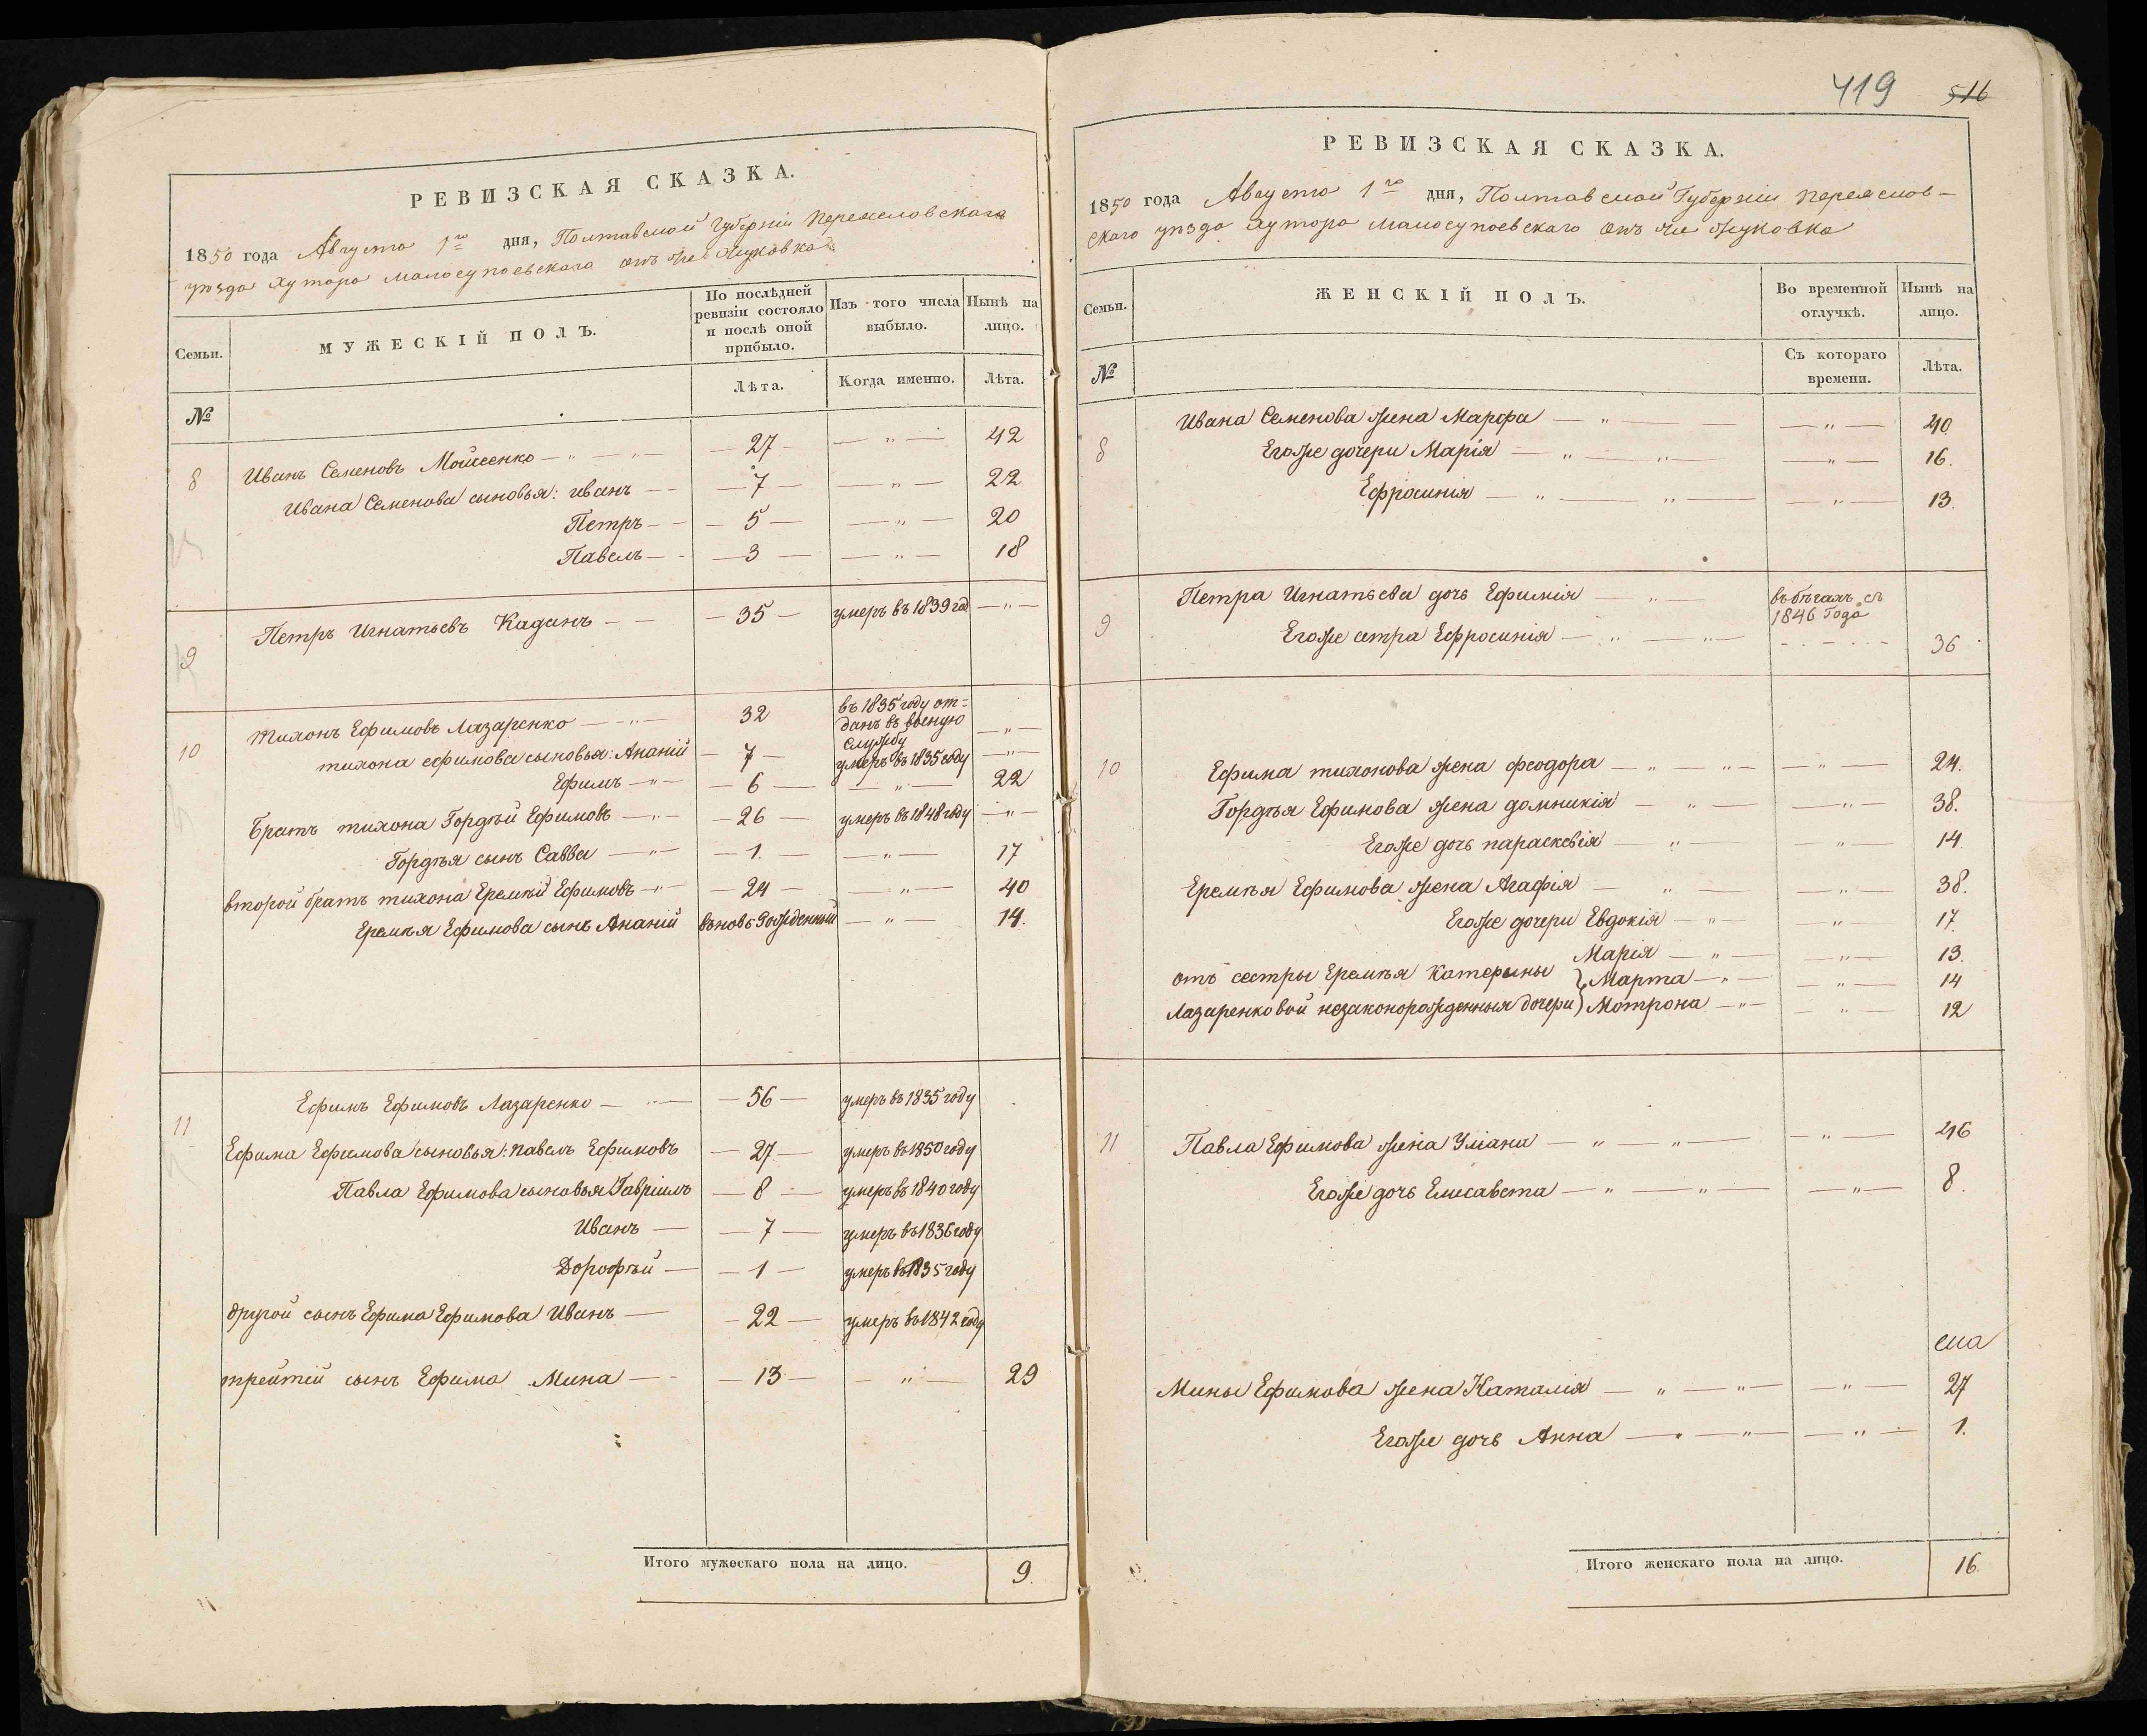 РЕВИЗСКАЯ СКАЗКА.
1850 года Августа 1го дня, Полтавской Губерніи Переяславскаго
уѣзда Хутора Малосупоевскаго онъ же Жуковка
Семьи.
МУЖЕСКІЙ ПОЛЪ.
По послѣдней ревизіи состояло и послѣ оной прибыло.
Изъ того числа выбыло.
Нынѣ на лицо.
№
Лѣта.
Когда именно.
Лѣта.
8 Иванъ Семеновъ Мойсеенко — " — " — 27 — " — 42
Ивана Семенова сыновья: иванъ — 7 — — " — 22
Петръ — 5 — — " — 20
Павелъ — 3 — — " — 18
9 Петръ Игнатьевъ Кадинъ — 35 — умеръ въ 1839 год — " —
10 Тихонъ Ефимовъ Лазаренко — " — 32 въ 1835 году от=
данъ въ военую
службу — " —
тихона ефимова сыновья: Ананій — 7 — умеръ въ 1835 году — " —
Ефимъ — " — 6 — — " — 22
Братъ тихона Гордѣй Ефимовъ — " — 26 — умеръ въ 1848 году — " —
Гордѣя сынъ Савва — " — 1. — — " — 17
второй братъ тихона Еремѣй Ефимовъ — " — 24 — — " — 40
Еремѣя Ефимова сынъ Ананій вновь рожденный — " — 14.
11 Ефимъ Ефимовъ Лазаренко — " — 56 — умеръ въ 1835 году
Ефима Ефимова сыновья: павелъ Ефимовъ — 27 — умеръ въ 1850 году
Павла Ефимова сыновья Гавріилъ — 8 — умеръ въ 1840 году
Иванъ — 7 — умеръ въ 1836 году
Дорофѣй — 1 — умеръ въ 1835 году
другой сынъ Ефима Ефимова Иванъ — 22 — умеръ въ 1842 году
трейтій сынъ Ефима Мина — 13 — — " — 29
Итого мужескаго пола на лицо. 9.
419 516
РЕВИЗСКАЯ СКАЗКА.
1850 года Августа 1го дня, Полтавской Губерніи Переяслов-
скаго уѣзда Хутора Малосупоевскаго онъ же Жуковка
Семьи.
ЖЕНСКІЙ ПОЛЪ.
Во временной отлучкѣ.
Нынѣ на лицо.
№
Съ котораго времени.
Лѣта.
8 Ивана Семенова жена Марфа — " — — " — 40
Егоже дочери Марія — " — " — — " — 16.
Ефросинія — " — " — — " — 13.
9 Петра Игнатьева дочь Ефимія — " — въ бѣгахъ съ
1846 года
Егоже сетра Ефросинія — " — " — 36
10 Ефима тихонова жена феодора — " — " — — " — 24.
Гордѣя Ефимова жена домникія — " — — " — 38.
Егоже дочь параскевія — " — — " — 14.
Еремѣя Ефимова жена Агафія — " — — " — 38.
Егоже дочери Евдокія — " — — " — 17.
Марія — " — — " — 13.
отъ сестры Еремѣя Катерыны } Марта — " — — " — 14
Лазаренковой незаконорожденныя дочери } Мотрона — " — — " — 12
11 Павла Ефимова жена Уліана — " — " — — " — 46
Егоже дочь Елисавета — " — " — — " — 8.
Мины Ефимова жена Наталія — " — " — — " — 27
Егоже дочь Анна — " — — " — 1.
Итого женскаго пола на лицо. 16.